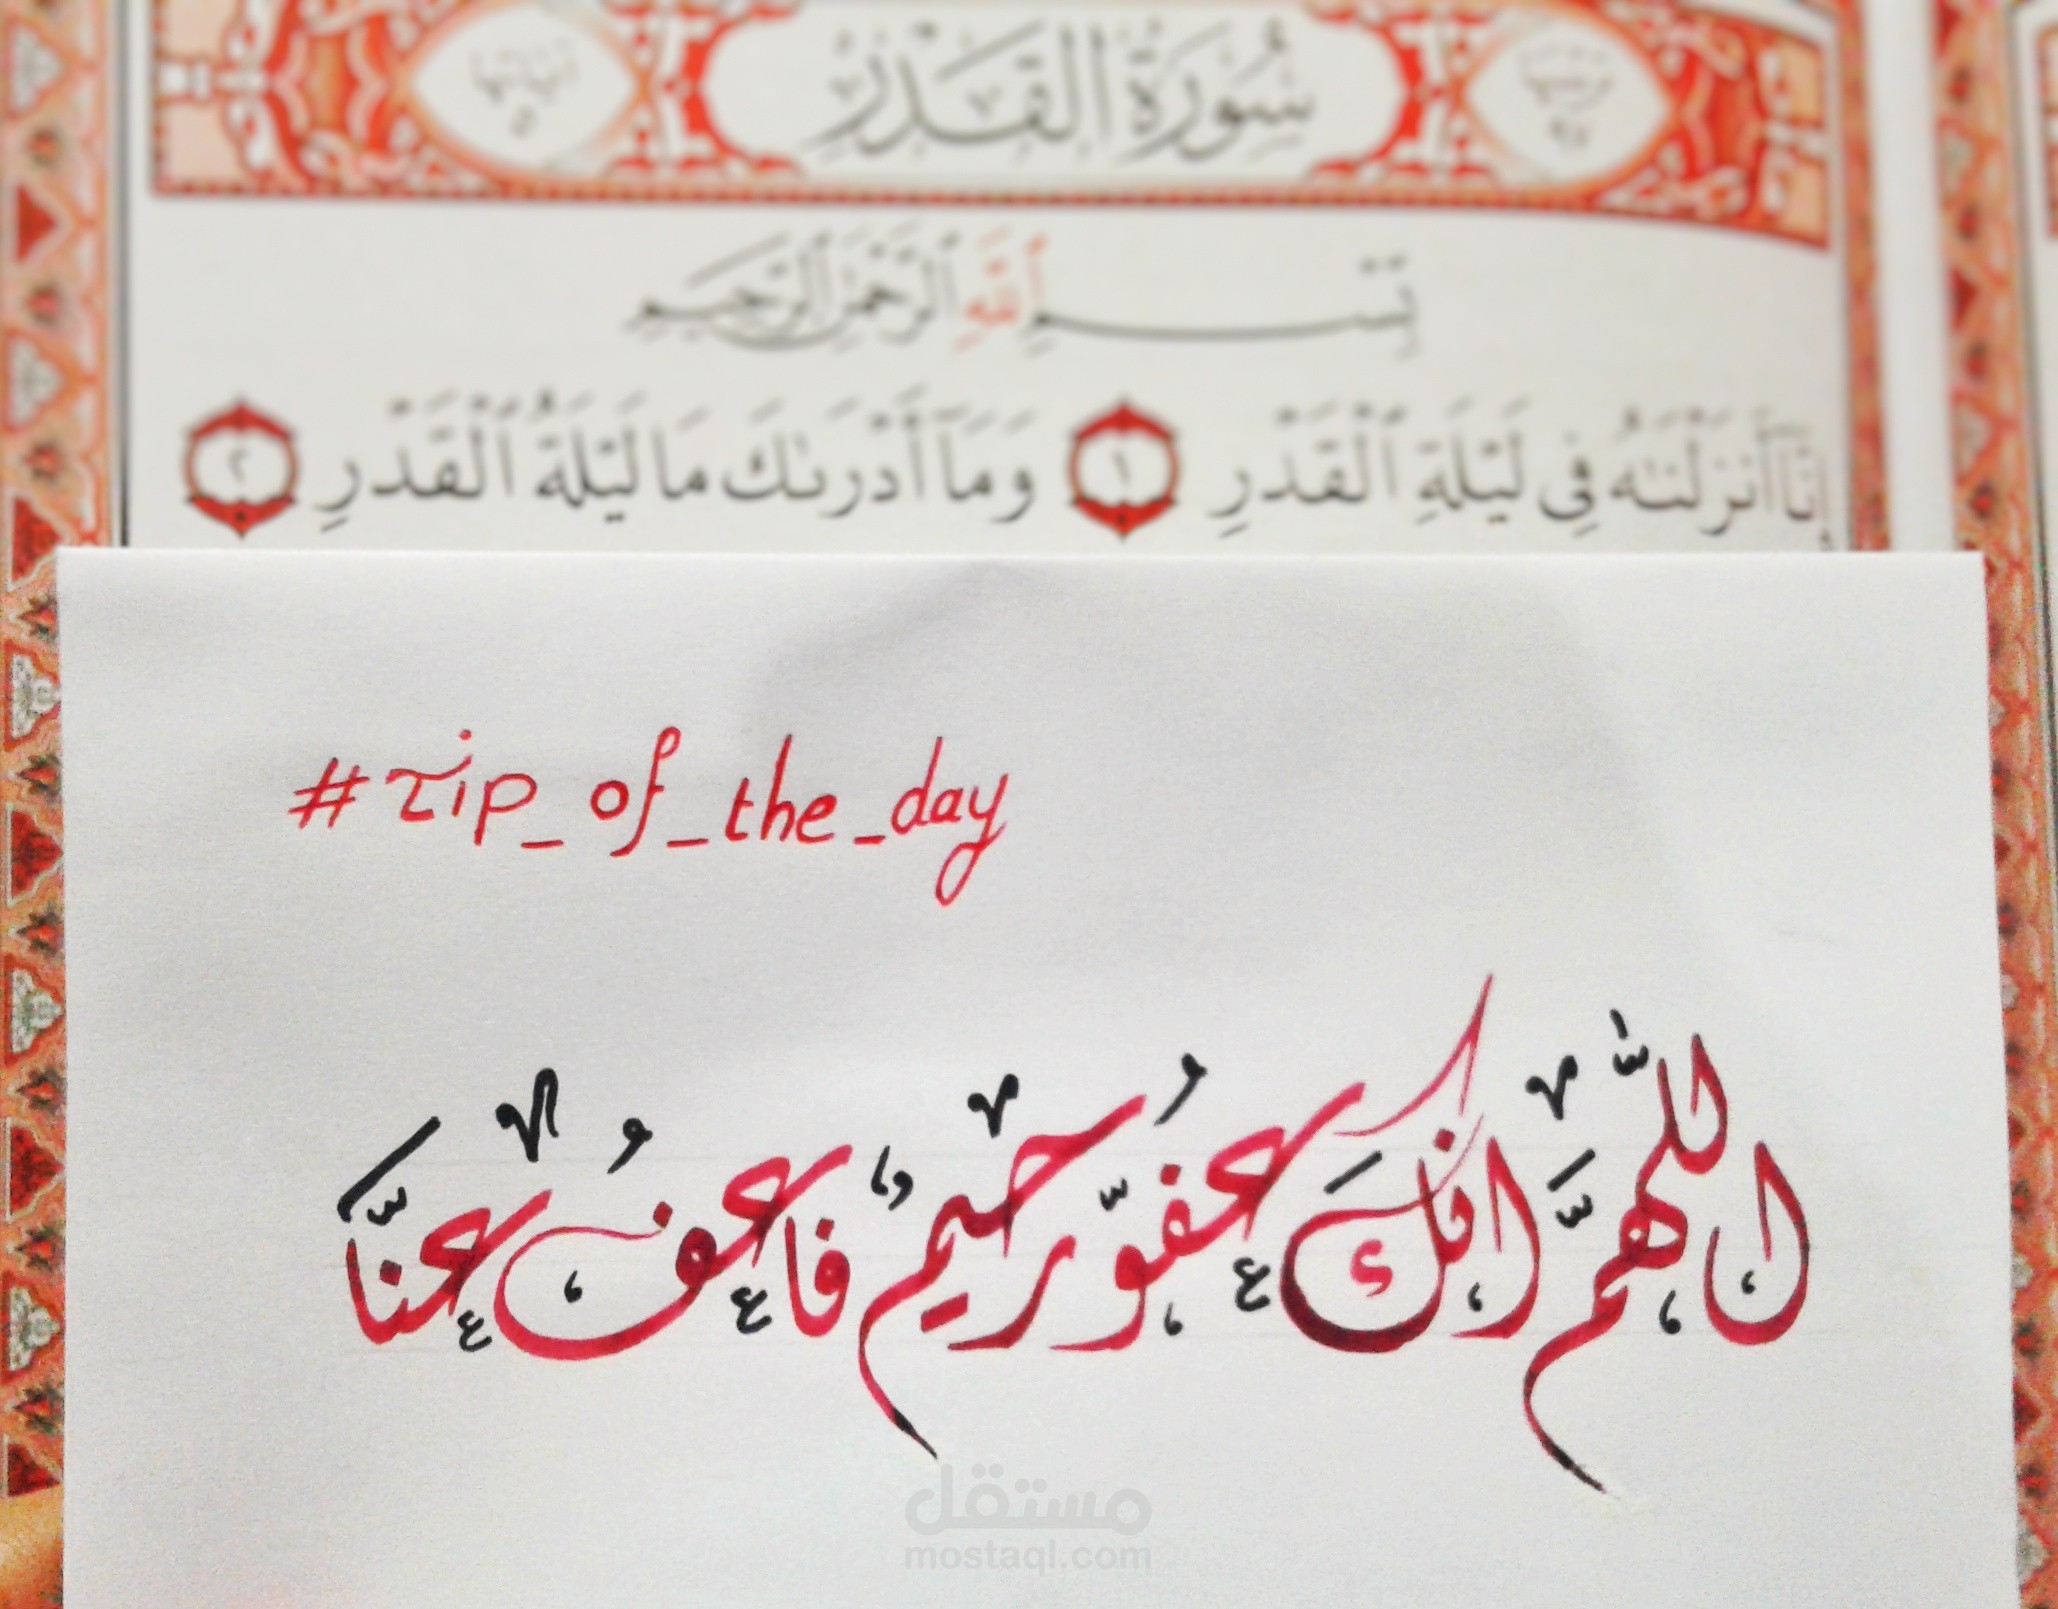 ترتيبها ٩٧ سُورَةُ القَدْرِ آياتها ٥
بِسْمِ ٱللَّهِ ٱلرَّحْمَٰنِ ٱلرَّحِيمِ
إِنَّآ أَنزَلْنَٰهُ فِي لَيْلَةِ ٱلْقَدْرِ ١ وَمَآ أَدْرَىٰكَ مَا لَيْلَةُ ٱلْقَدْرِ ٢
#Tip_of_the_day
اللّٰهمَّ انكَ عفوّ رحيم فاعفُ عنَّا
مستقل
mostaql.com